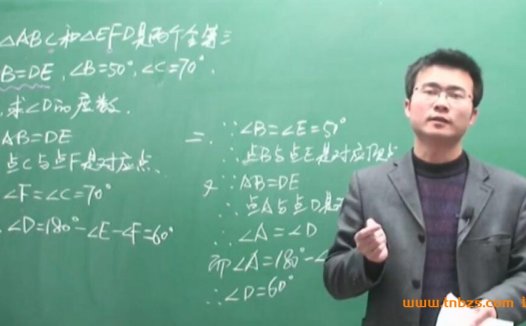 △ABC和△EFD是两个全等三
B=DE,∠B=50°,∠C=70°.
求∠D的度数.
AB=DE
点C与点F是对应点.
∠F=∠C=70°
∠D=180°-∠E-∠F=60°
二 ∵∠B=∠E=50°
点B与点E是对应顶点
又∵AB=DE
点A与点D是
∴∠A=∠D
而∠A=180°-∠
∴∠D=60°
www.tnbzs.com